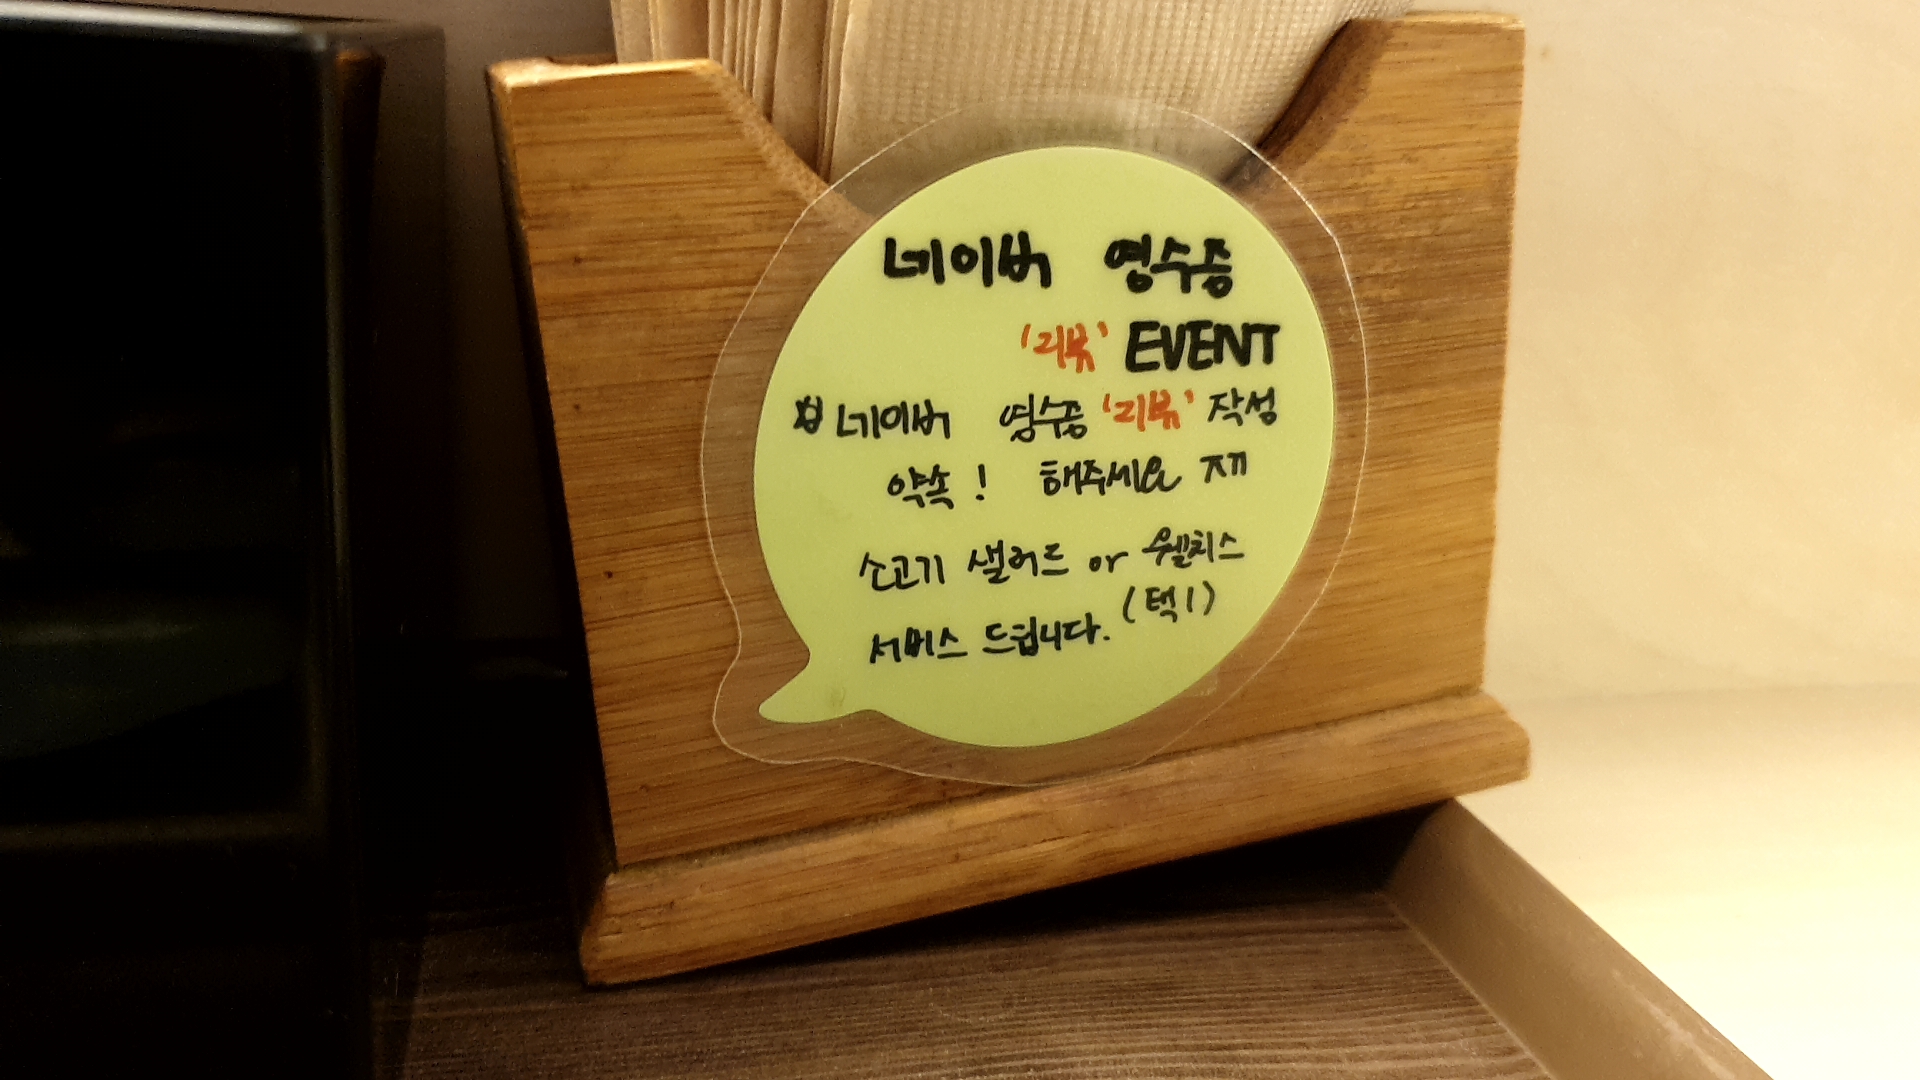 네이버 영수증
'리뷰' EVENT
네이버 영수증 '리뷰' 작성
약속! 해주세요
소고기 샐러드 or 웰치스
(택1)
서비스 드립니다.